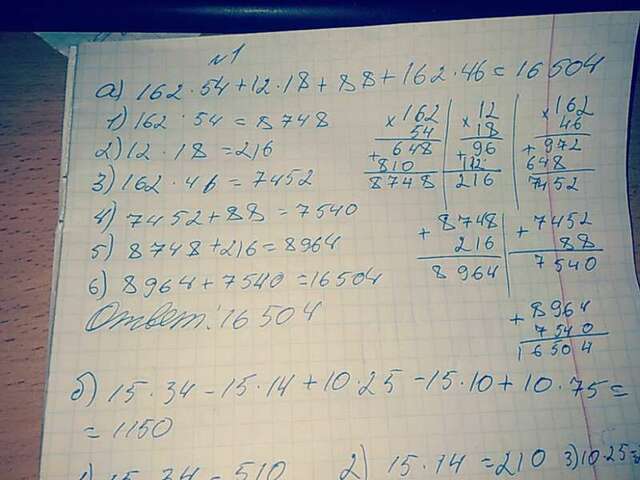 №1
а) 162·54+12·18+88+162·46=16504
1) 162·54=8748
2) 12·18=216
3) 162·46=7452
4) 7452+88=7540
5) 8748+216=8964
6) 8964+7540=16504
Ответ: 16504
×162
54
+648
810
8748
×12
18
+96
12
216
×162
46
+972
648
7452
+8748
216
8964
+7452
88
7540
+8964
7540
16504
б) 15·34-15·14+10·25-15·10+10·75=
=1150
1) 15·34=510 2) 15·14=210 3) 10·25=